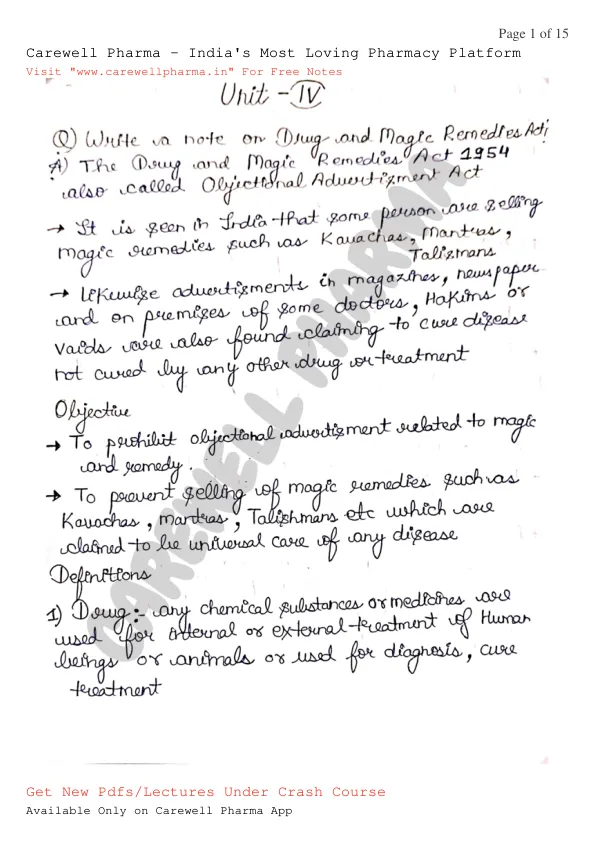 Page 1 of 15
Carewell Pharma - India's Most Loving Pharmacy Platform
Visit "www.carewellpharma.in" For Free Notes
Unit - IV
Q) Write a note on Drug and Magic Remedies Act
A) The Drug and Magic Remedies Act 1954
also called Objectional Advertizment Act
→ It is seen in India that some person are selling
magic remedies such as Kavachas, Mantras,
Talismans
→ Likewise advertisments in magazines, newspaper
and on premises of some doctors, Hakims or
Vaids are also found claiming to cure disease
not cured by any other drug or treatment
Objective
→ To prohibit objectional advertisment related to magic
and remedy.
→ To prevent selling of magic remedies such as
Kavachas, mantras, Talishmans etc which are
claimed to be universal care of any disease
Definitions
1) Drug:- any chemical substances or medicines are
used for internal or external treatment of Human
beings or animals or used for diagnosis, cure
treatment
CAREWELL PHARMA
Get New Pdfs/Lectures Under Crash Course
Available Only on Carewell Pharma App